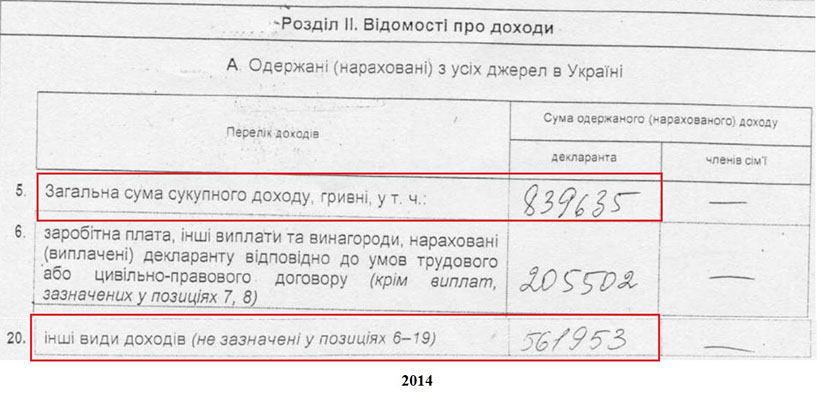 Розділ II. Відомості про доходи
А. Одержані (нараховані) з усіх джерел в Україні
Перелік доходів
Сума одержаного (нарахованого) доходу
декларанта
членів сім'ї
5. Загальна сума сукупного доходу, гривні, у т. ч.: 839635 —
6. заробітна плата, інші виплати та винагороди, нараховані
(виплачені) декларанту відповідно до умов трудового
або цивільно-правового договору (крім виплат,
зазначених у позиціях 7, 8) 205502 —
20. інші види доходів (не зазначені у позиціях 6–19) 561953 —
2014